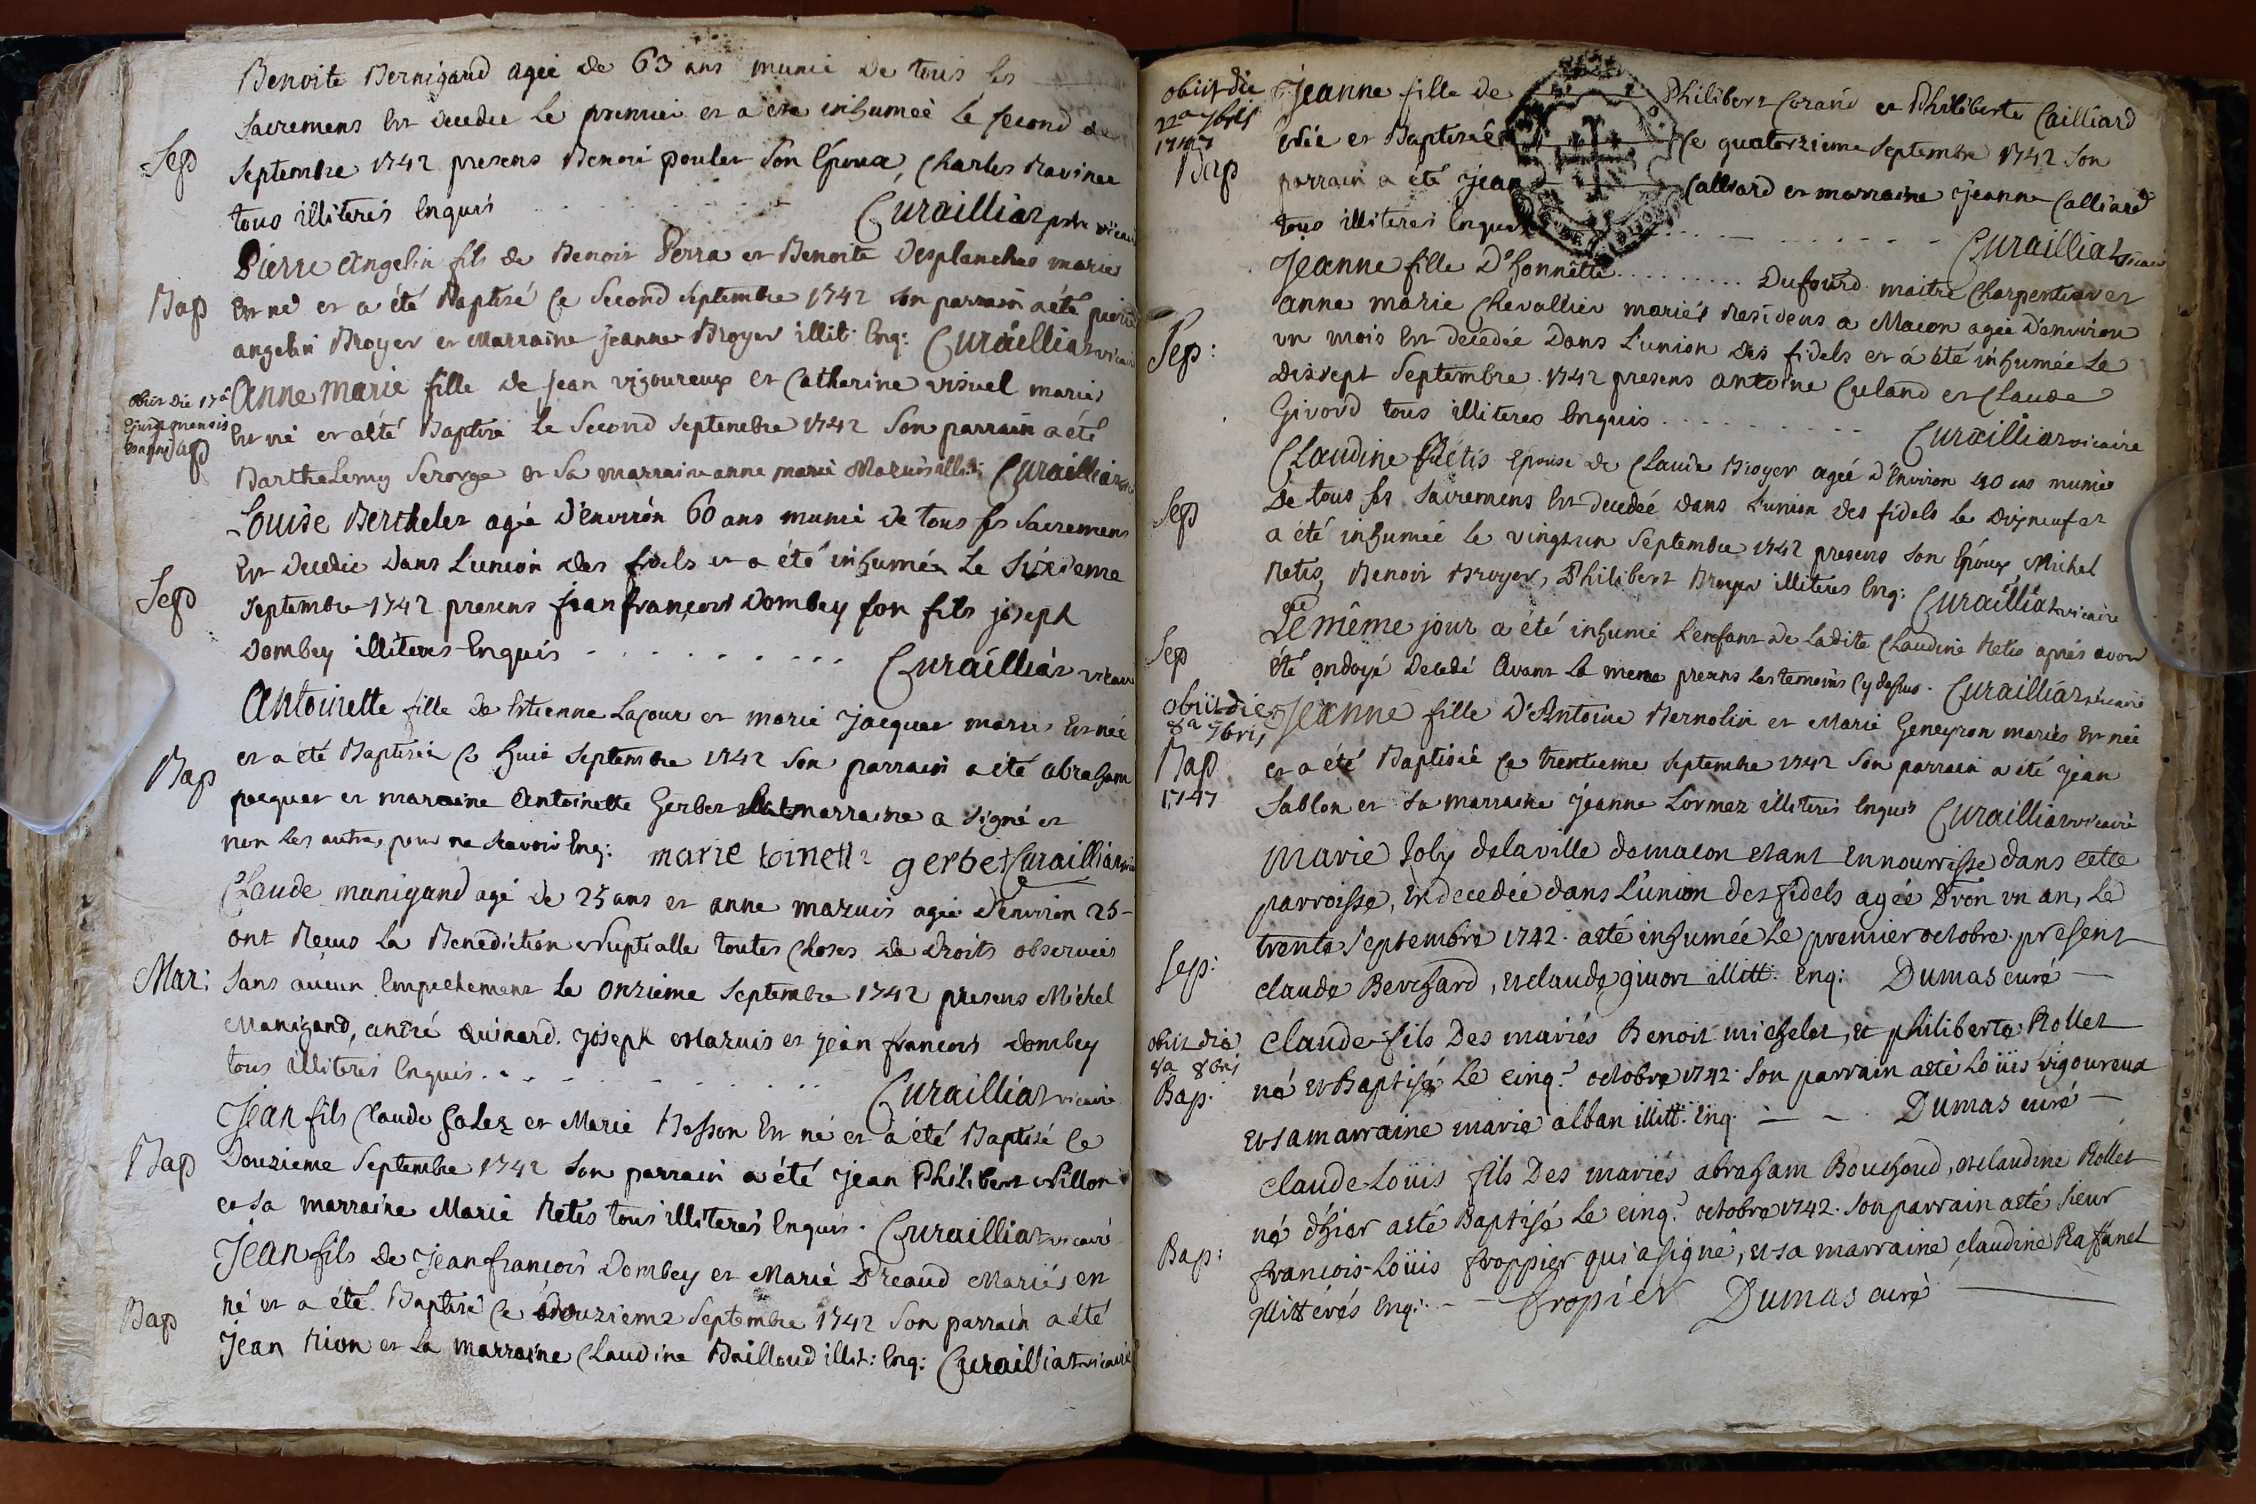 Benoite Bernigaud agée de 63 ans munie de tous les
Sacremens Est decedée le premier et a été inhumée le second de
Sep
Septembre 1742 presens Benoit poulet son Epoux, Charles Ravinet
tous illiterés Enquis Curailliat ptre vicaire
Pierre Angelin fils de Benoit Perra et Benoite Desplanches mariés
Bap
Est né et a été Baptisé ce second Septembre 1742 son parrain a été pierre
angelin Broyer et Marraine jeanne Broyer illit: Enq: Curailliat vicaire
Anne Marie fille de jean vigoureux et Catherine visuel mariés
obiit die 17a
Ejusdem mensis
Bap
Est né et a été Baptisé le Second Septembre 1742 Son parrain a été
Barthelemy Serorge et sa marraine anne marie Mazuis illit: Curailliat
Louise Berthelet agée d'environ 60 ans munie de tous ses Sacremens
Est Decedée Dans L'union des fidels et a été inhumée Le Sixieme
Sep
Septembre 1742 presens jean françois Dombey son fils joseph
Dombey illiteres Enquis Curailliat vicaire
Antoinette fille de Estienne Lacour et marie jacquet mariés Est née
et a été Baptisée ce huit Septembre 1742 Son parrain a été abraham
Bap
jacquet et maraine Antoinette Gerbet marraine a signé et
non les autres pour ne scavoir Enq: marie toinette gerbet Curailliat
Claude manigand agé de 25 ans et anne mazuis agée d'environ 25
ont Reçus la Benediction Nuptialle toutes choses de droits observées
Mar:
sans aucun Empechement le onzieme Septembre 1742 presens Michel
Manigand, andré quinard. joseph Mazuis et jean francois Dombey
tous illiterés Enquis. Curailliat vicaire
Jean fils Claude Galez et Marie Besson Est né et a été Baptisé ce
Bap
Douzieme Septembre 1742 son parrain a été jean Philibert
et sa marraine Marie Retis tous illiterés Enquis. Curailliat vicaire
Jean fils de Jean françois Dombey et Marie Preaud Mariés en
né et a été Baptisé ce douzieme Septembre 1742 Son parrain a été
Bap
Jean Rion et la marraine Claudine Baillaud illit: Enq: Curailliat vicaire
obiit die
22a 7bris
1747
Bap
Jeanne fille de Philibert Corand et Philiberte Cailliard
Née et Baptisée Ce quatorzieme Septembre 1742 Son
parrain a été jean Calliard et marraine Jeanne Calliard
tous illiterés Enquis Curailliat vicaire
Jeanne fille D'honnette ......... Dufourd maitre Charpentier et
anne marie Chevallier mariés Residens a Macon agée d'environ
Sep:
un mois Est decedée Dans L'union des fidels et a été inhumée Le
Dixsept Septembre 1742 presens antoine Culand et Claude
Givord tous illiteres Enquis Curailliat vicaire
Claudine Rétis Epouse de Claude Broyer agée d'Environ 40 ans munie
Sep
De tous ses Sacremens Est decedée dans L'union des fidels le Dixneuf et
a été inhumée le vingtun Septembre 1742 presens son Epoux Michel
Retis, Benoit Broyer, Philibert Broyer illiteres Enq: Curailliat vicaire
Sep
Le même jour a été inhumé L'enfant de Ladite Claudine Retis aprés avoir
été ondoyé Decedé Avant la mere presens les temoins cy dessus. Curailliat vicaire
obiit die
8a 7bris
Bap
1747
Jeanne fille D'Antoine Bernolin et Marie Geneyron mariés Est née
et a été Baptisée ce trentieme Septembre 1742 Son parrain a été Jean
Sablon et sa marraine jeanne Lormez illiterés Enquis Curailliat vicaire
Marie Joly de la ville de macon etant en nourrisse dans cette
parroisse, Est decedée dans L'union des fidels agée D'von un an, Le
Sep:
trente Septembre 1742. a eté inhumée Le premier octobre present
claude Berchard, et claude givort illitt: Enq: Dumas curé
obiit die
8a 8bris
Bap.
claude fils Des mariés Benoit michelet, et philiberte Rollet
né Est Baptisé Le cinq.e octobre 1742. Son parrain a eté Loüis vigoureux
et sa marraine marie alban illitt. Enq. Dumas curé
claude Loüis fils Des mariés abraham Bouchoud, et claudine Rollet
né d'hier a eté Baptisé Le cinq.e octobre 1742. Son parrain a eté sieur
Bap:
francois-Loüis froppier qui a signé, et sa marraine claudine Raffanel
illittérés Enq: fropier Dumas curé